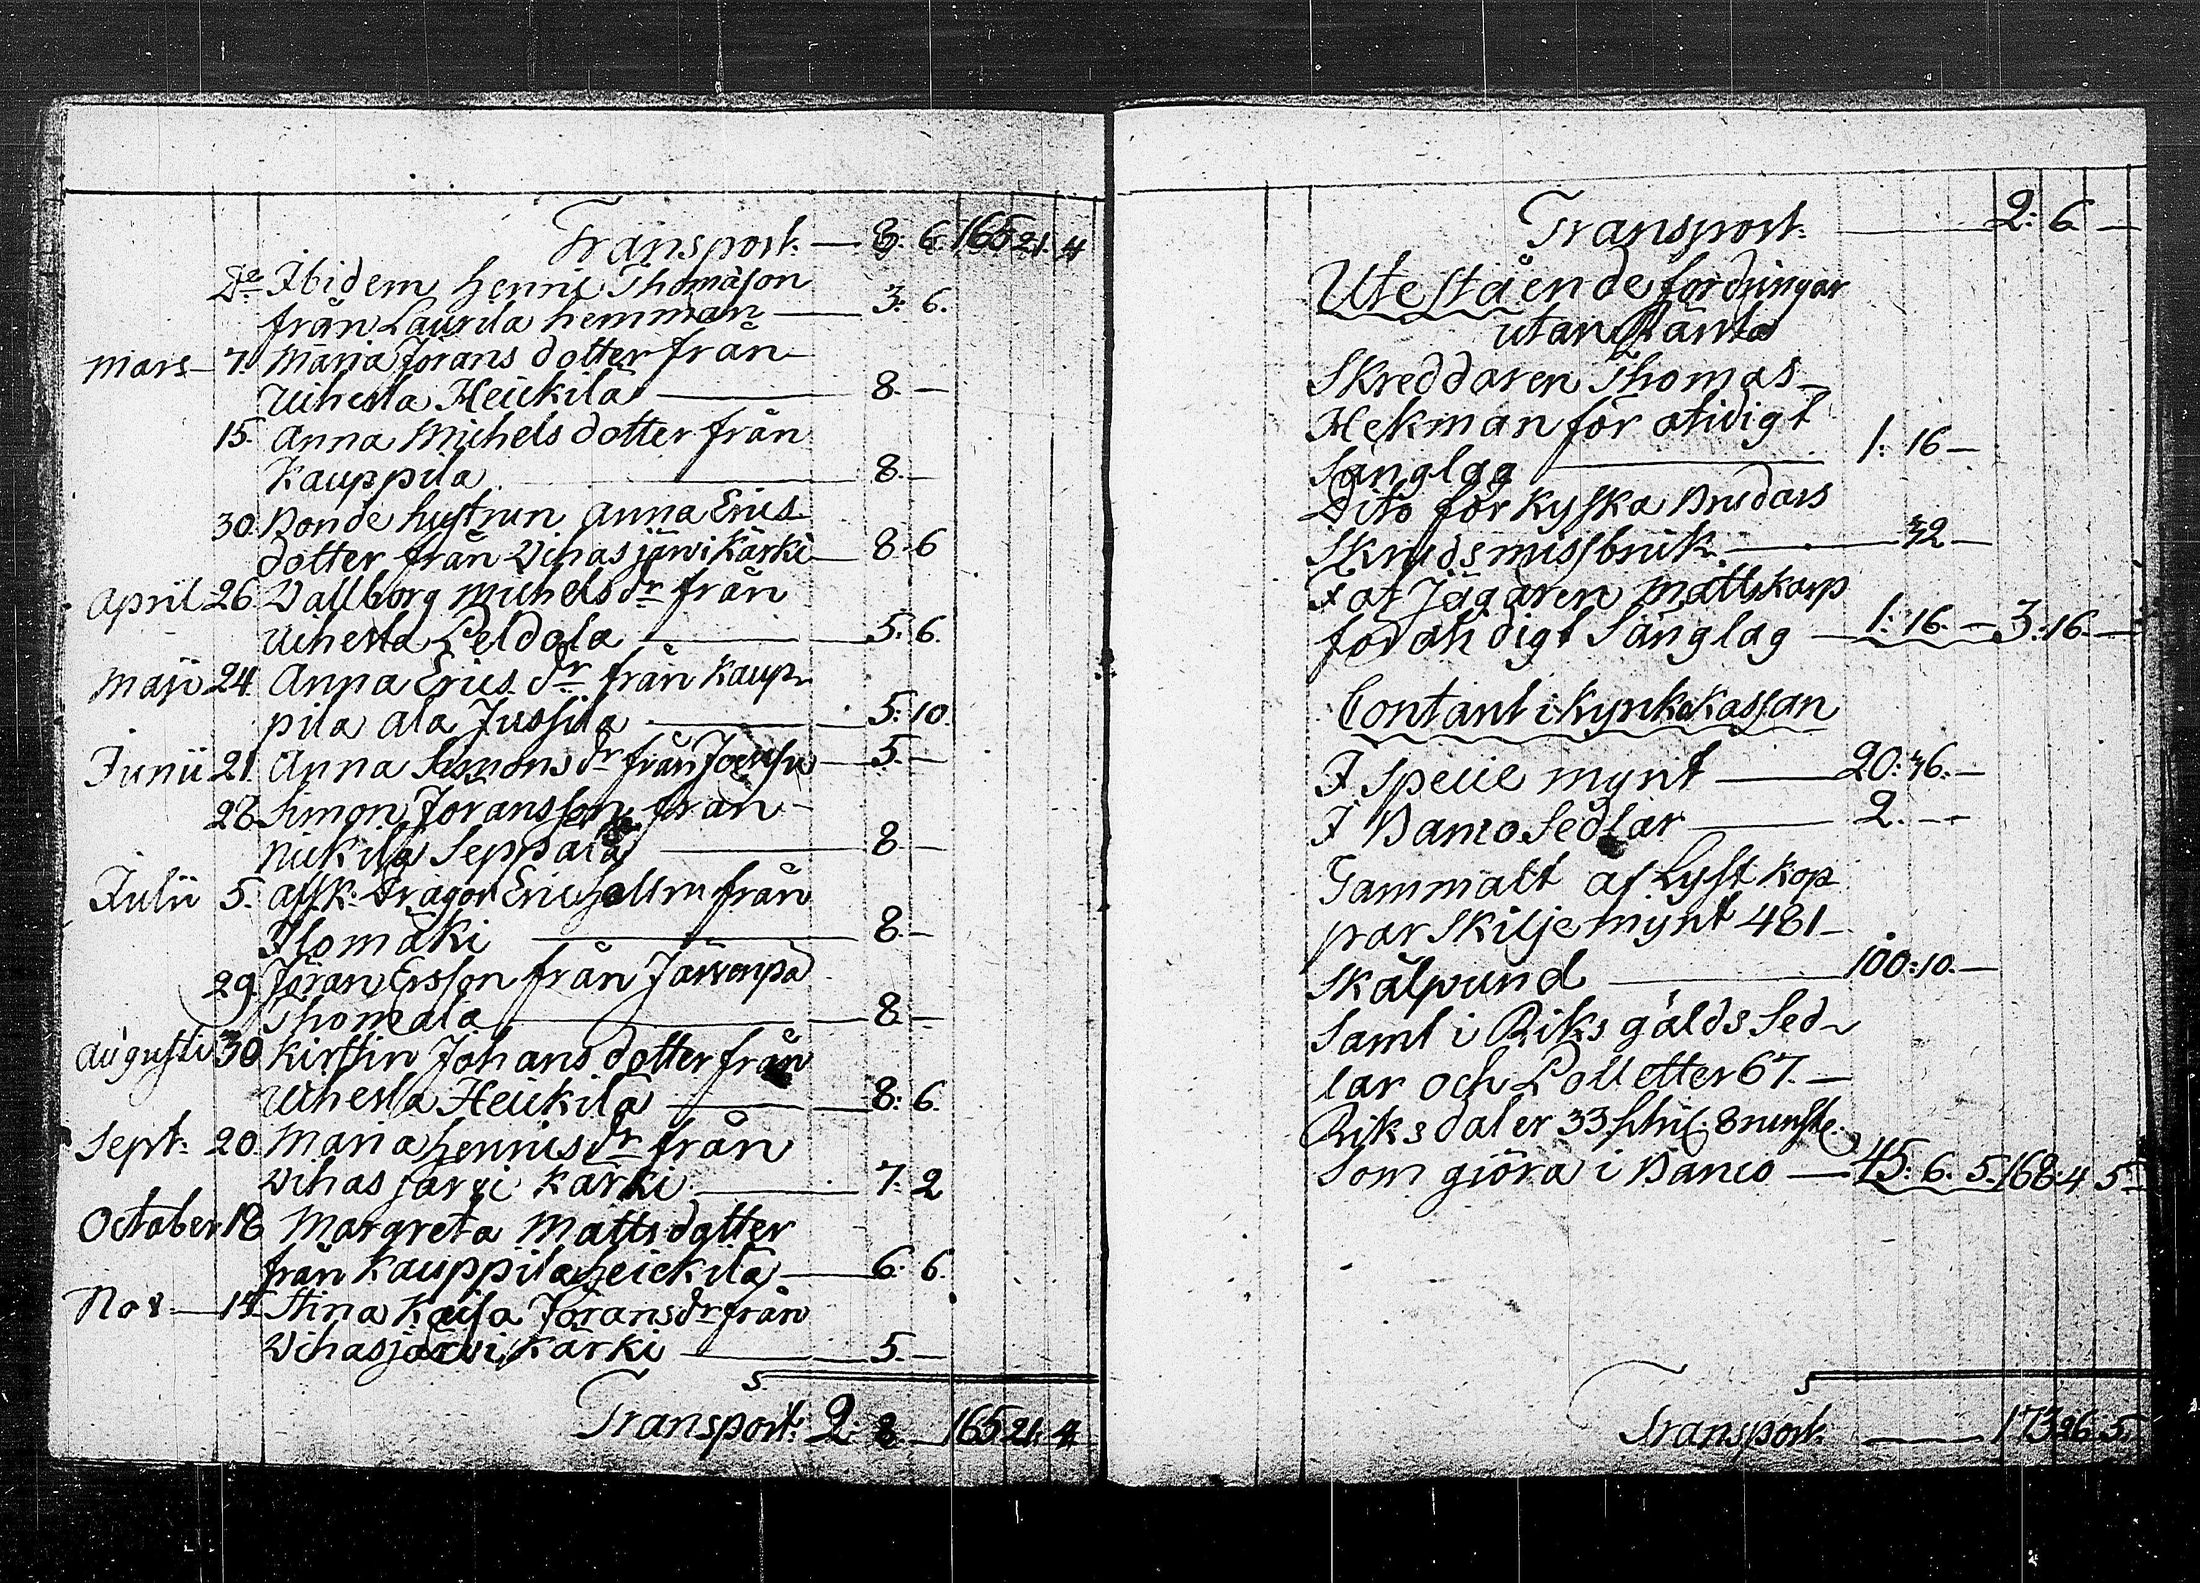 Transport. — 8. 6. 165 21. 4
Do Ibidem Henric Thomasson
från Laurila hemman — 3. 6.
Mars — 7. Maria Jörans dotter från
Uihesla Heickilä — 8. —
15. Anna Michels dotter från
Kauppila — 8. —
30. Bonde hustrun Anna Erics
dotter från Vihasjärwi Kärki — 8. 6
April 26. Vallborg Michels dr från
Uihesla Peldola — 5. 6.
Maji 24. Anna Erics dr från Kaup
pila ala Jussila — 5: 10.
Junii 21. Anna Simons dr från — 5. —
28. Simon Joransson från
Nickilä Seppälä — 8. —
Julii 5. afsk: Dragon Eric från
Ilomäki — 8. —
29. Jöran Ersson från Järvenpä
Thomala — 8. —
Augusti 30. Kirstin Johans dotter från
Uihesla Heickilä — 8: 6.
Sept: 20. Maria Henrics dr från
Vihasjärvi Kärki. — 7. 2
October 18 Margreta Matts dotter
från Kauppila Heickilä — 6: 6.
Nov — 14. Stina Kaisa Jöransdr från
Vihasjärvi Kärki — 5. —
Transport: 2: 8. — 165 21. 4
Transport. — 2: 6 —
Utestående fordringar
utan Ränta
Skreddaren Thomas
Hekman för otidigt
Sänglag — 1: 16 —
Dito för kyska Brudars
Skruds missbruk. — 32 —
F af Jägaren Matts Karp
för otidigt Sänglag — 1: 16. — 3: 16. —
Contant i Kyrkokassan
I Specie mynt — 20: 46. —
I Banco Sedlar — 2. —
Gammalt af Lyst kop
par Skiljemynt 481 —
Skålpund — 100: 10. —
Samt i Riksgälds Sed
lar och Polletter 67. —
Riksdaler 33 schil. 8 runst.
Som giöra i Banco — 45: 6. 5. 168: 4 5
Transport. — 173 26 5.